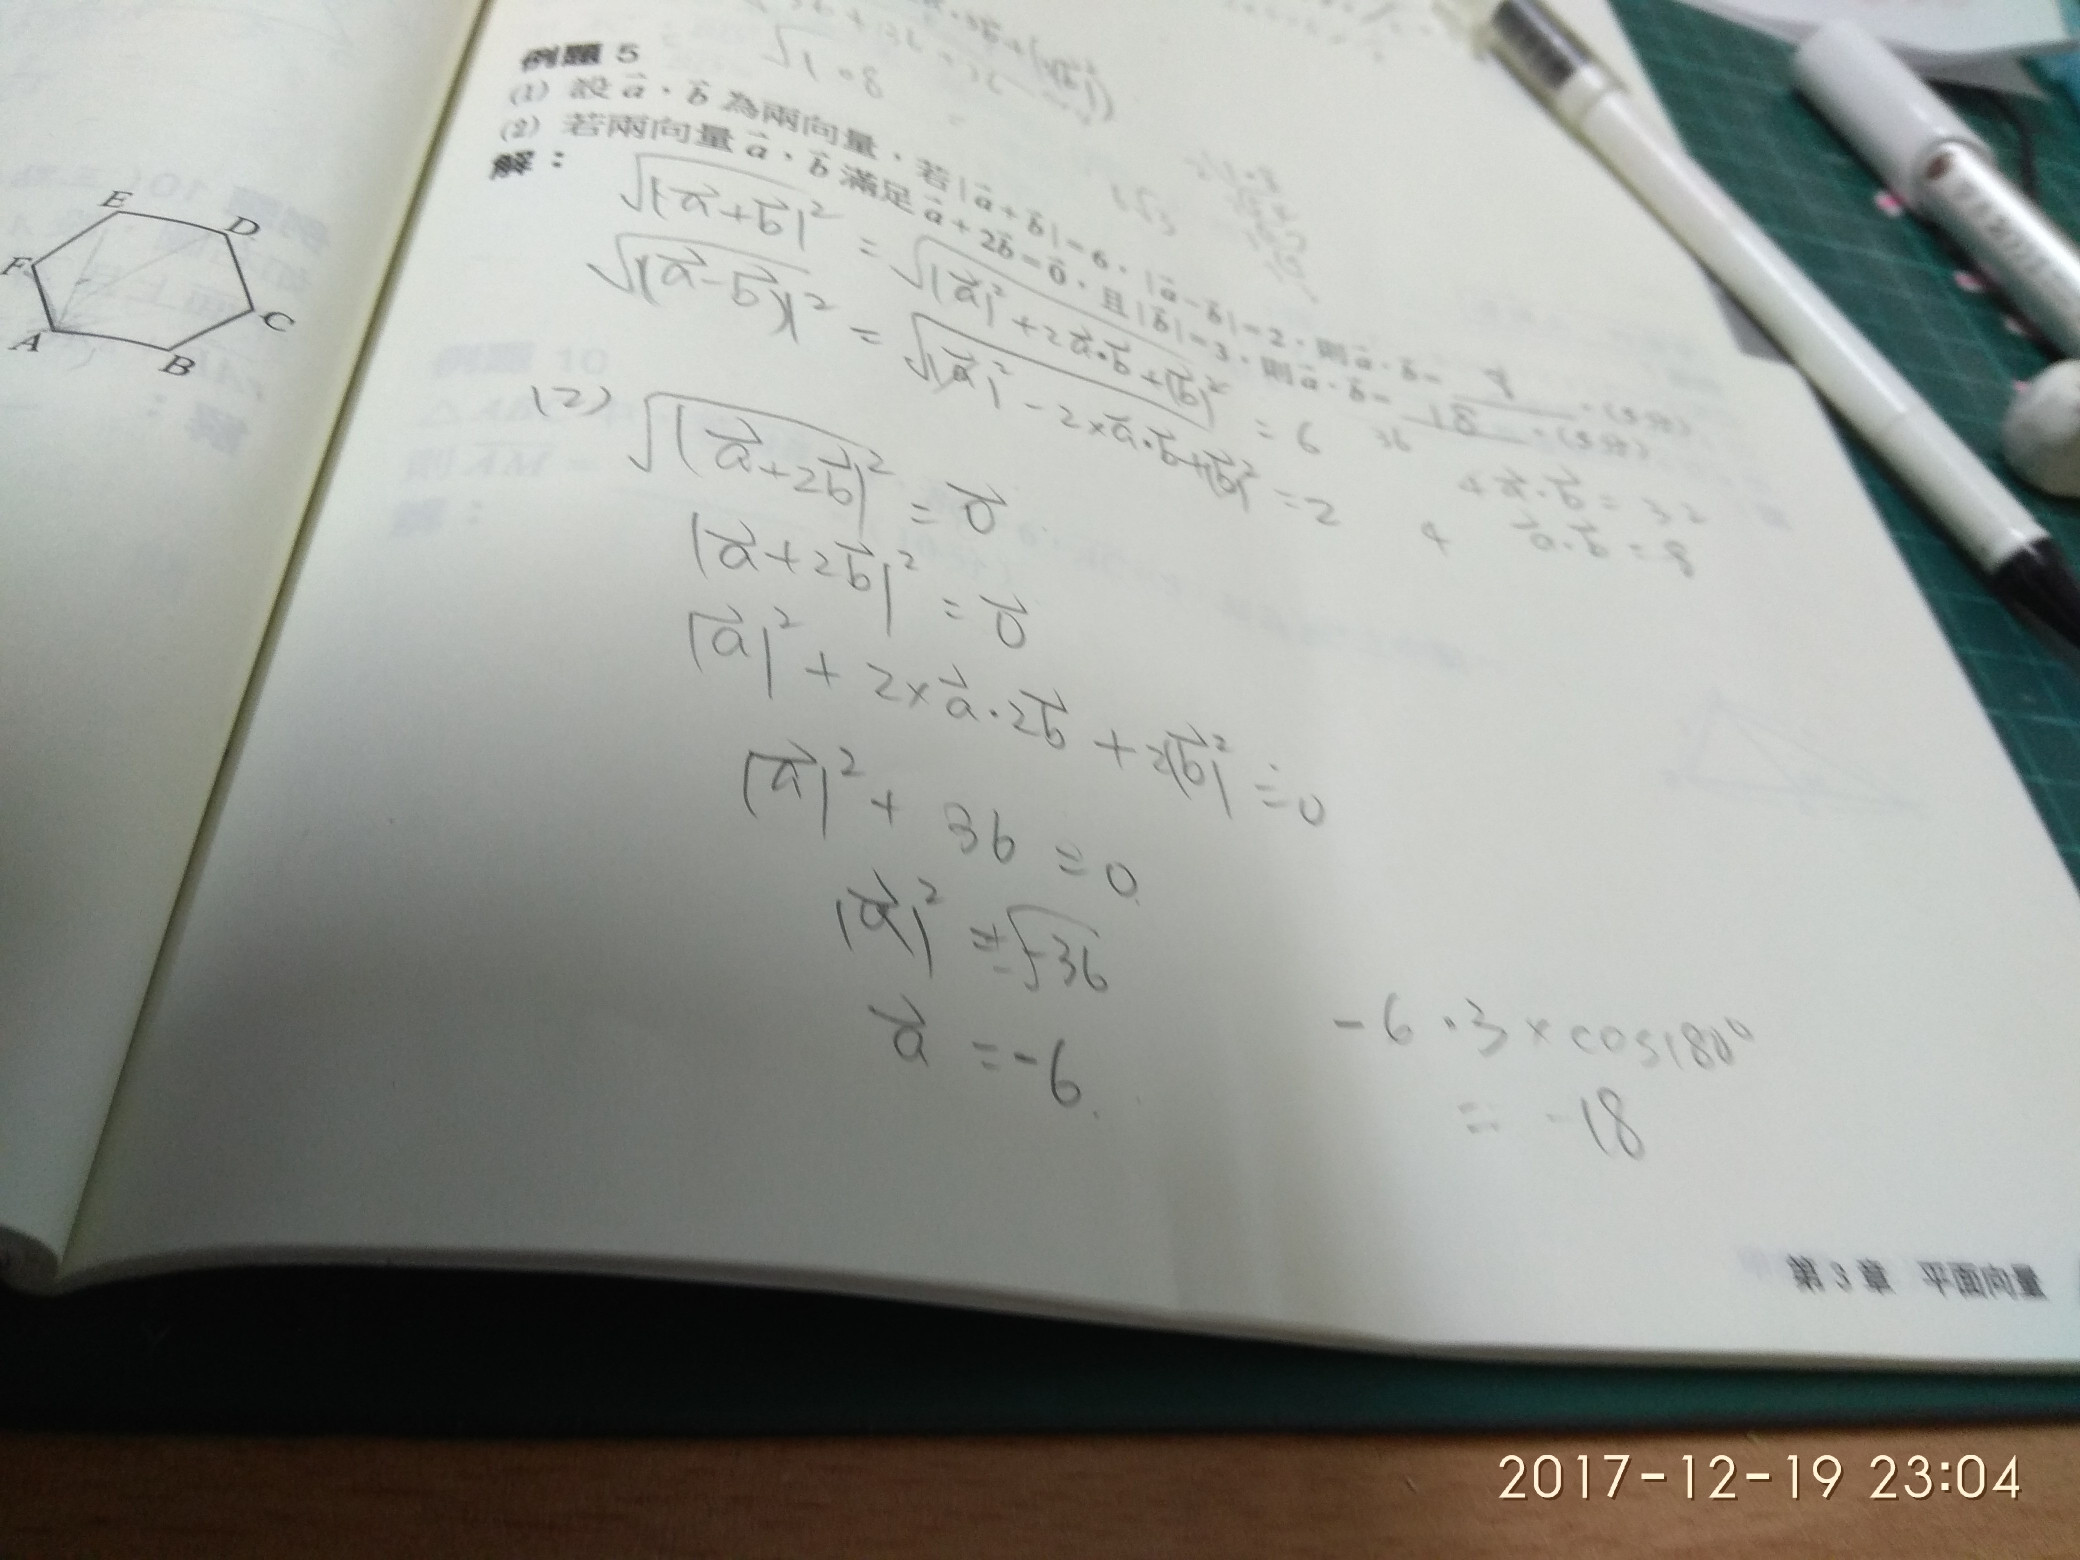 例題 5
(1) 設 a⃗，b⃗ 為兩向量，若 |a⃗+b⃗|=6，|a⃗−b⃗|=2，則 a⃗·b⃗= 8 。(5分)
(2) 若兩向量 a⃗，b⃗ 滿足 a⃗+2b⃗=0⃗，且 |b⃗|=3，則 a⃗·b⃗= 18 。(5分)
解：
√|a⃗+b⃗|² = √|a⃗|²+2a⃗·b⃗+|b⃗|² = 6 36
√|(a⃗-b⃗)|² = √|a⃗|²-2×a⃗·b⃗+|b⃗|² = 2 4
4a⃗·b⃗ = 32
a⃗·b⃗ = 8
(2) √|a⃗+2b⃗|² = 0⃗
|a⃗+2b⃗|² = 0⃗
|a⃗|² + 2×a⃗·2b⃗ + 2|b⃗|² = 0
|a⃗|² + 36 = 0
|a⃗|² = √-36
a⃗ = -6
-6·3×cos180°
= -18
√108
E
D
F
C
A
B
第 3 章 平面向量
2017-12-19 23:04